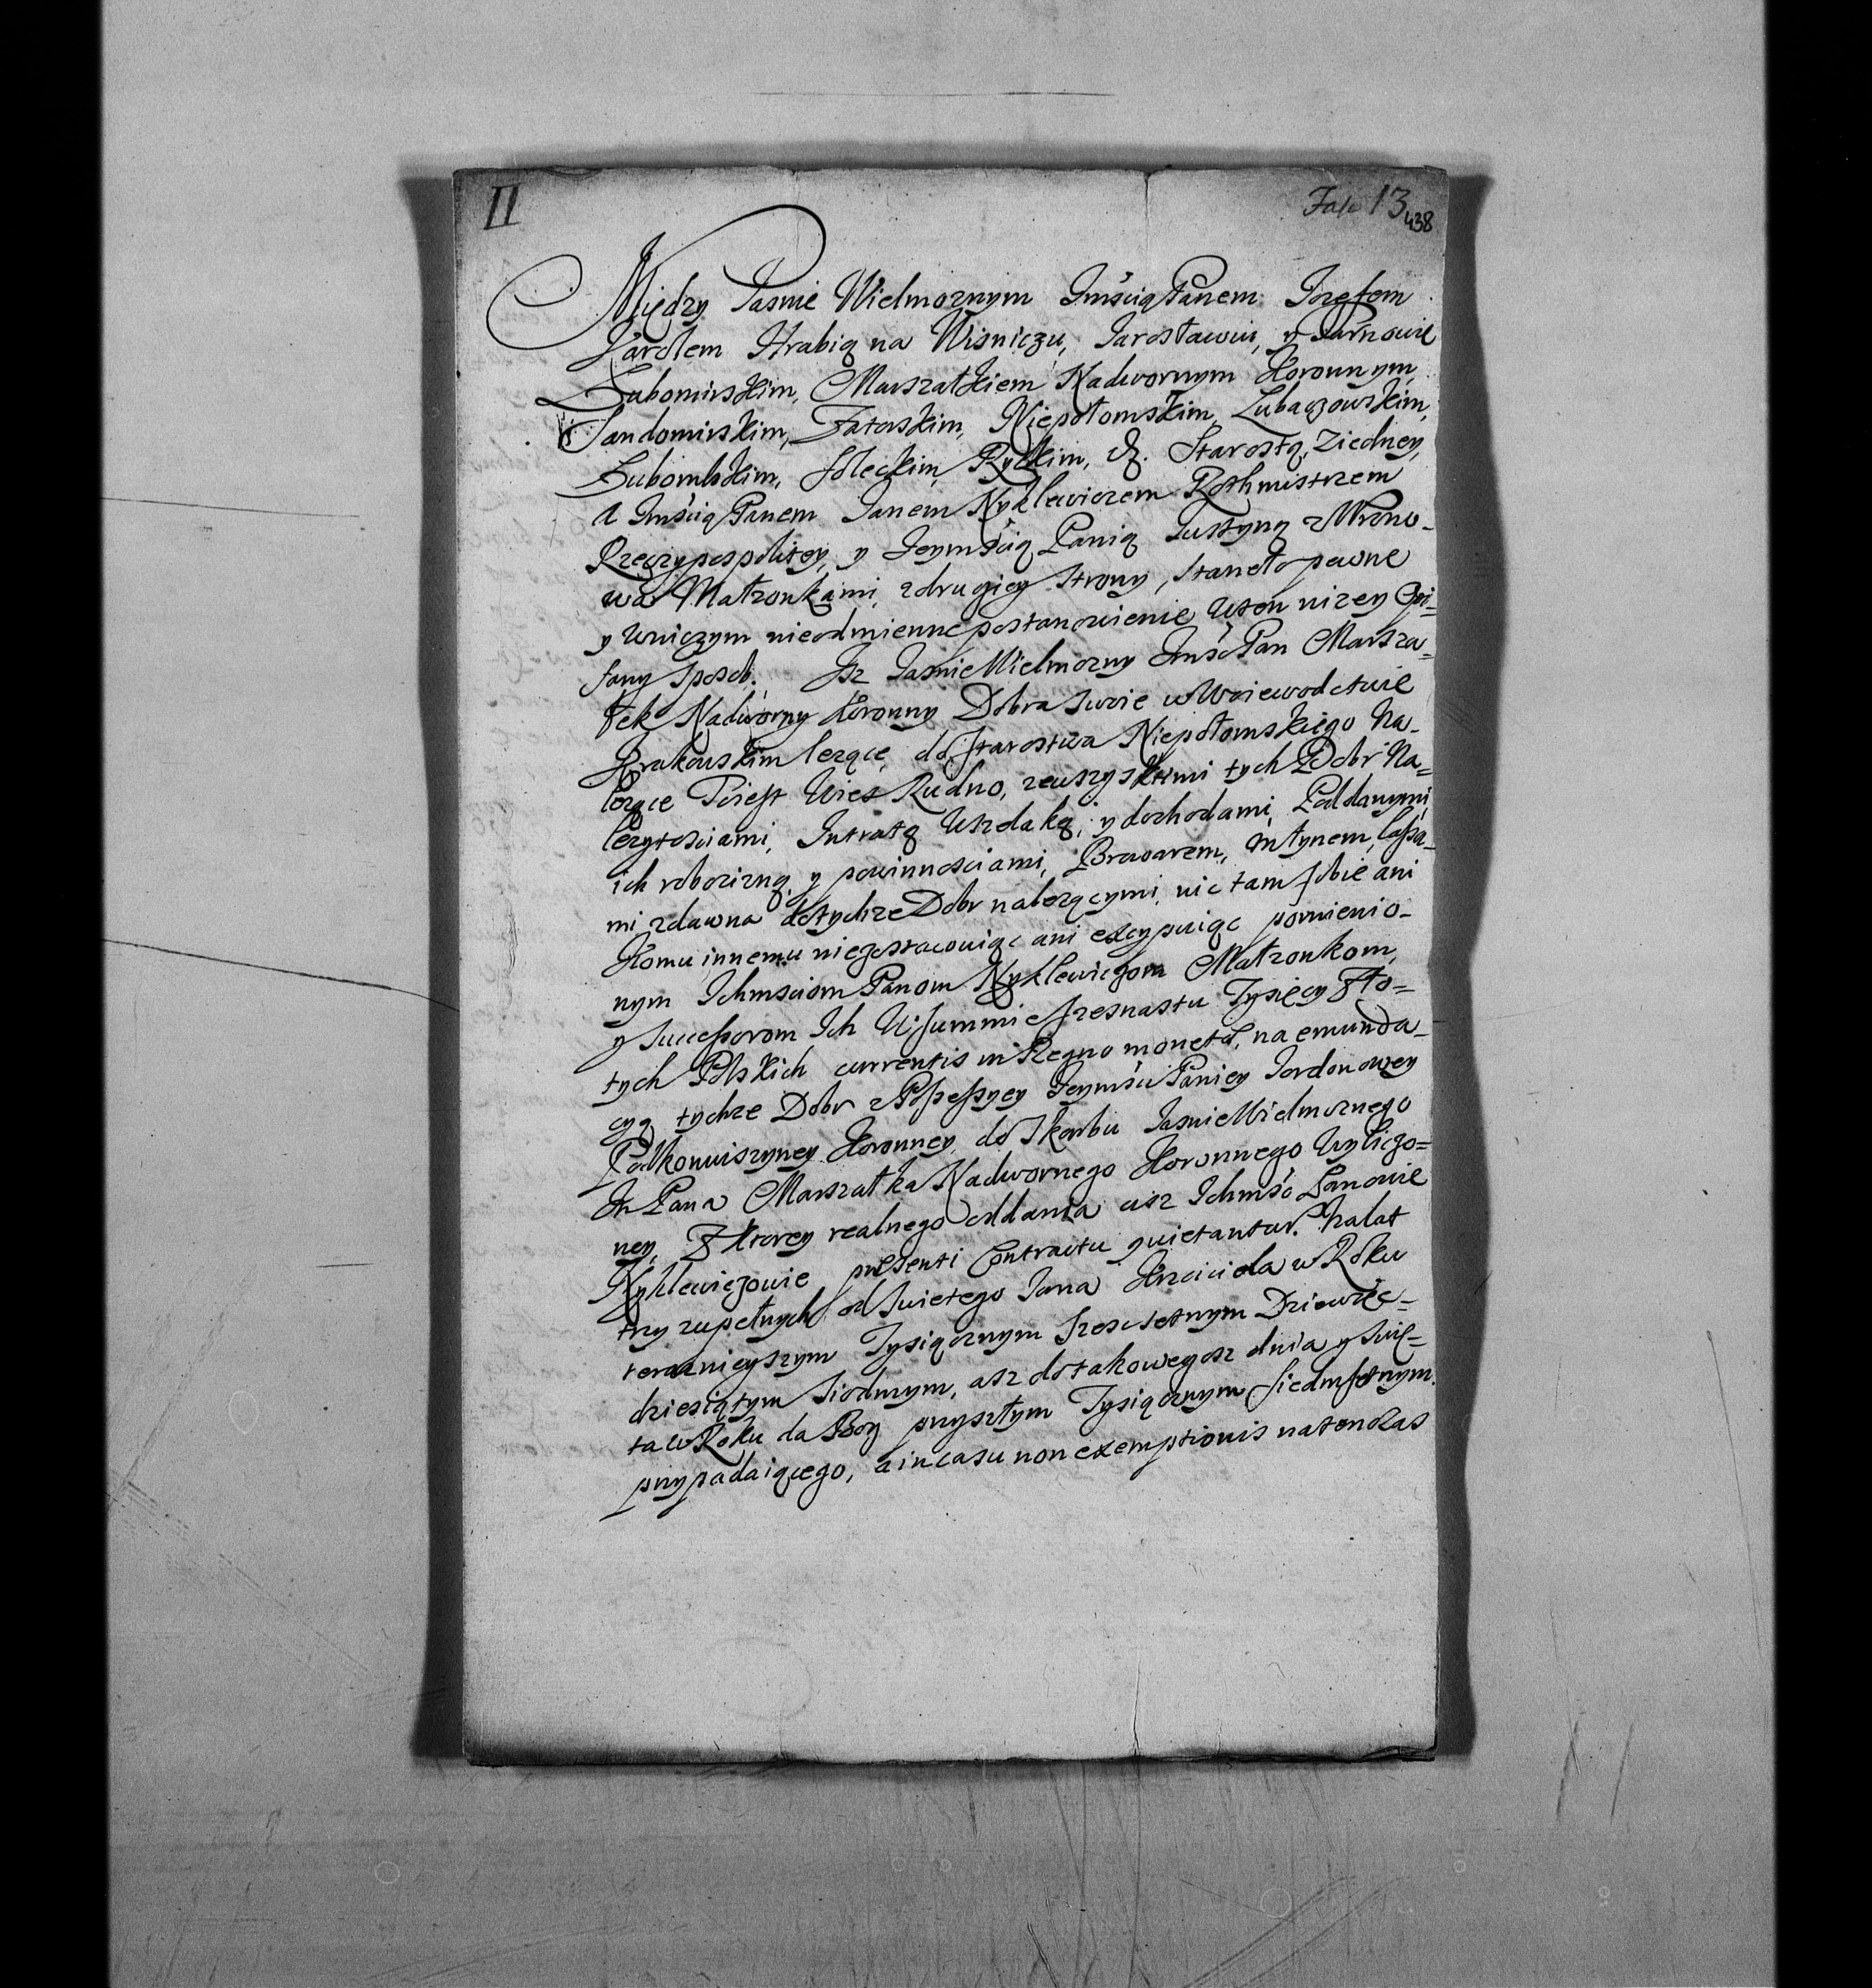 II
Fas 13
438
Między Jasnie Wielmoznym Jmścią Panem Jozefem
Karolem Hrabią na Wiśniczu, Jarosławiu, y Tarnowie
Lubomirskim, Marszałkiem Nadwornym Koronnym,
Sandomirskim, Zatorskim, Niepołomskim, Lubaczowskim,
Lubomlskim, Soleckim, Ryckim, &. Starostą, ziedney,
A Jmścią Panem Janem Nyklewiczem Rothmistrzem
Rzeczypospolitey, y Jeymścią Panią Justyną z Wrono-
wa Małzonkami, zdrugiey strony, stanęło pewne
y wniczym nieodmienne postanowienie wten nizey Opi=
sany sposob. Jz Jasnie Wielmozny Jmść Pan Marsza=
łek Nadworny Koronny Dobra swoie w Woiewodctwie
Krakowskim lezące, do Starostwa Niepołomskiego Na-
lezące To iest Wies Rudno, zewszystkimi tych Dobr Na=
lezytosciami, Intratą wszelaką, y dochodami, Poddanymi,
ich robocizną y powinnosciami, Browarem, Młynem, lassa-
mi zdawna dotychze Dobr nalezącymi, nic tam sobie ani
Komu innemu niezostawuiąc ani excypuiąc pomienio-
nym Ichmsciom Panom Nyklewiczom Małzonkom,
y Successorom Ich W summie szesnastu Tysięcy Zło=
tych Polskich currentis in Regno monetæ, na emunda-
cyą tychze Dobr z Possessyey Jeymści Paniey Jordonowey
Podkoniuszyney Koronney, do Skarbu Jasnie Wielmoznego
Jm Pana Marszałka Nadwornego Koronnego wyliczo=
ney, Z ktorey realnego oddania asz Ichmść Panowie
Nyklewiczowie præsenti Contractu quietantur. Nalat
trzy zupełnych od Swietego Jana Krzciciela w Roku
teraznieyszym Tysiącznym Szescsetnym Dziewię=
dziesiątym Siodmym, asz do takowegosz dnia y Swię=
ta w Roku da Bog przyszłym Tysiącznym siedmsetnym
przypadaiącego, a in casu non exemptionis natenczas